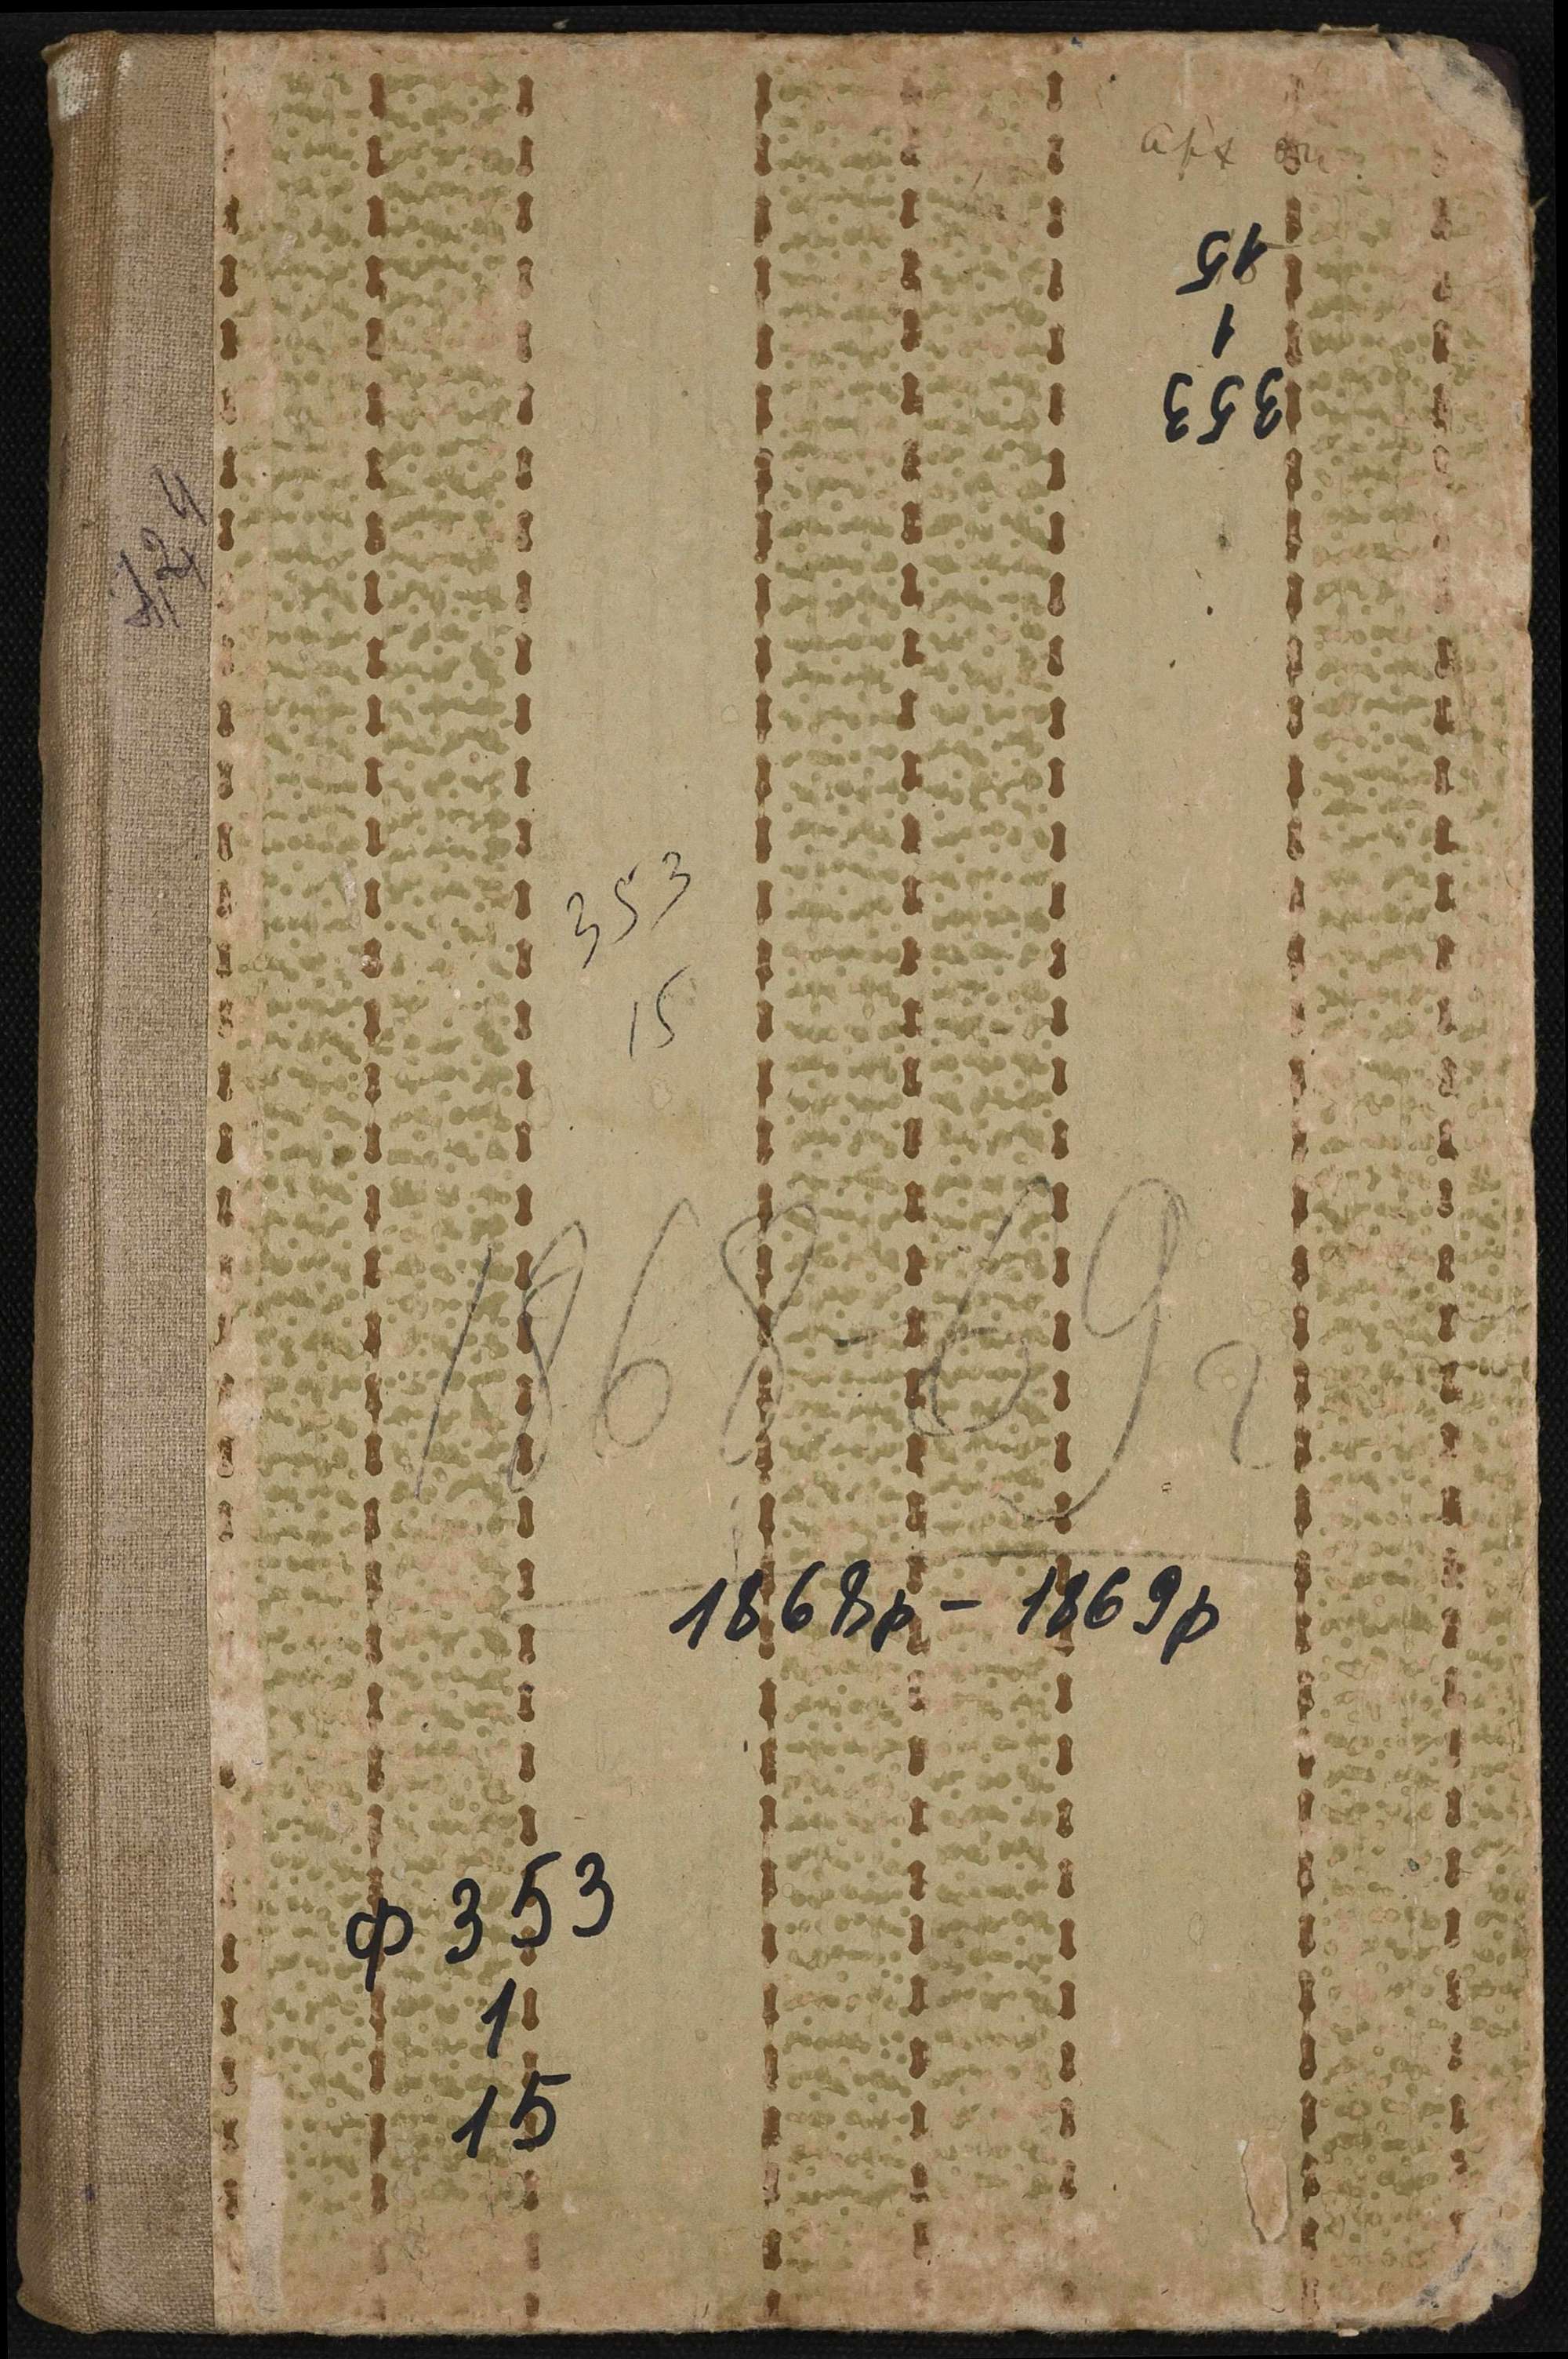 арх
353
1
15
353
15
1868-69 г
1868р – 1869р
ф 353
1
15